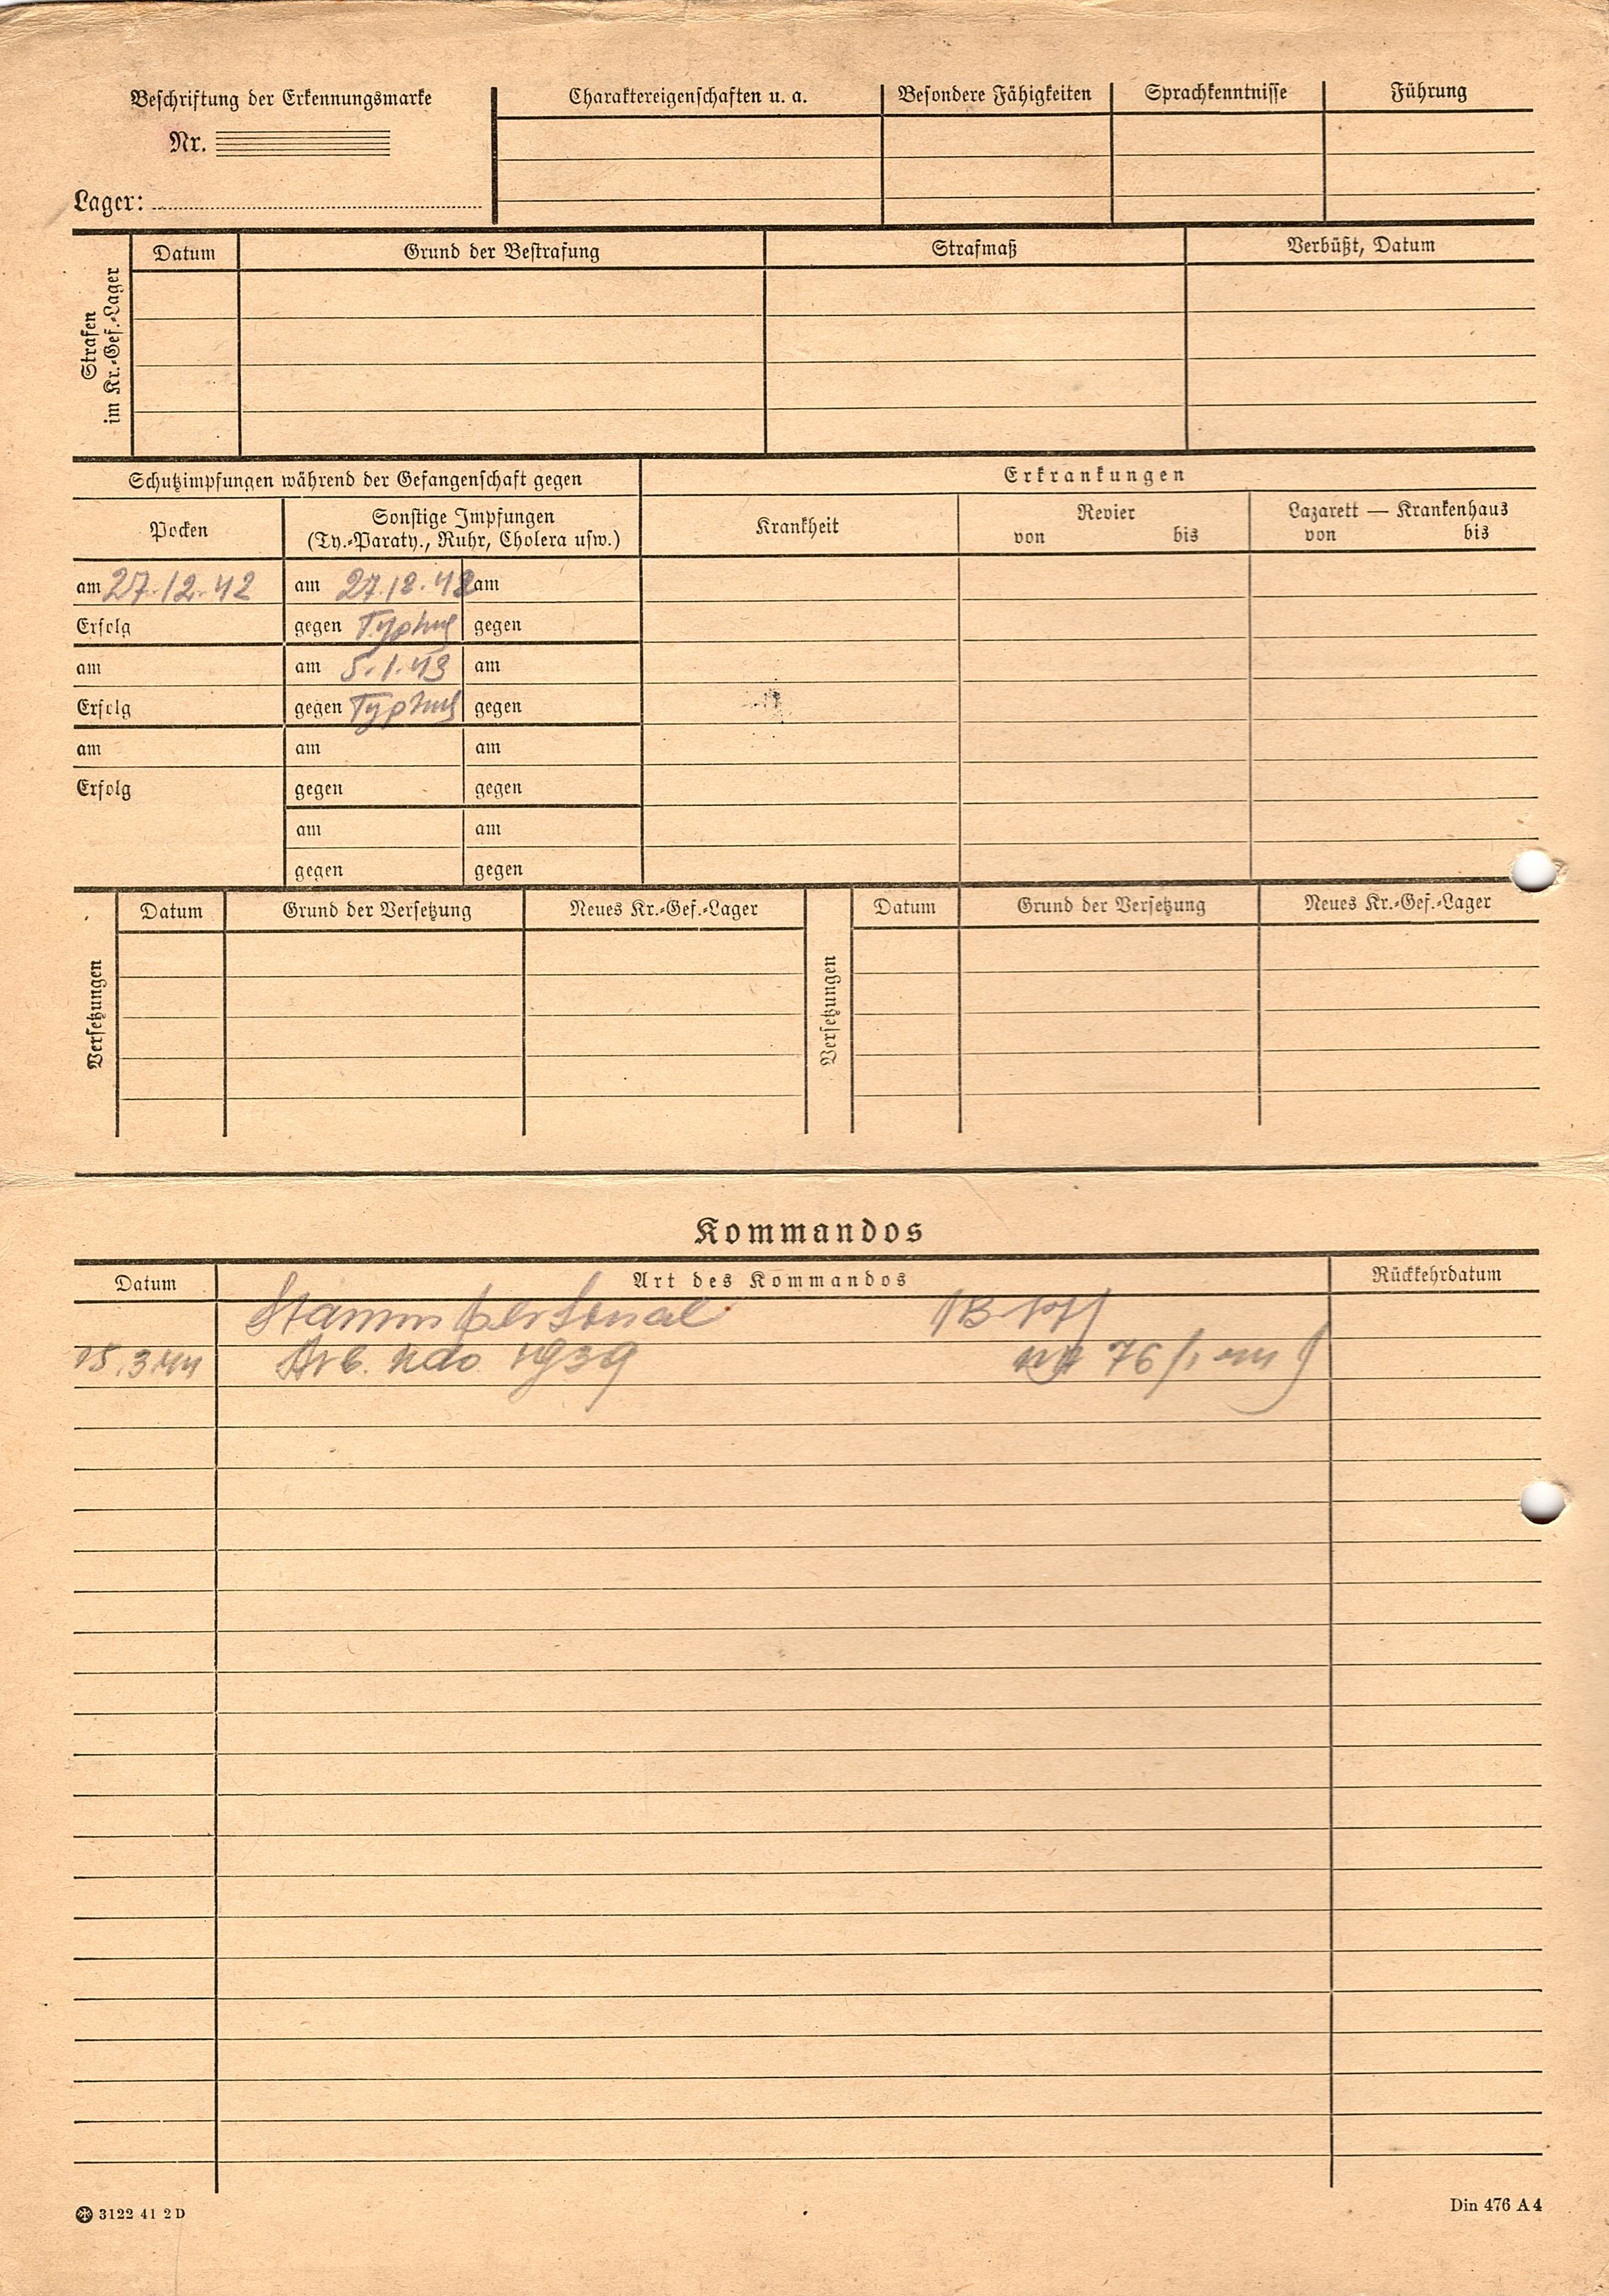 Beschriftung der Erkennungsmarke
Nr.
Lager:
Charaktereigenschaften u. a.
Besondere Fähigkeiten
Sprachkenntnisse
Führung
Strafen
im Kr.-Gef.-Lager
Datum
Grund der Bestrafung
Strafmaß
Verbüßt, Datum
Schutzimpfungen während der Gefangenschaft gegen
Erkrankungen
Pocken
Sonstige Impfungen
(Ty.-Paraty., Ruhr, Cholera usw.)
Krankheit
Revier
von bis
Lazarett — Krankenhaus
von bis
am 27.12.42 am 27.12.42 am
Erfolg gegen Typhus gegen
am am 5.1.43 am
Erfolg gegen Typhus gegen
am am am
Erfolg gegen gegen
am am
gegen gegen
Versetzungen
Datum
Grund der Versetzung
Neues Kr.-Gef.-Lager
Versetzungen
Datum
Grund der Versetzung
Neues Kr.-Gef.-Lager
Kommandos
Datum
Art des Kommandos
Rückkehrdatum
Stammpersonal
15.3.44 Arb. Kdo. 1939 76/
3122 41 2 D
Din 476 A 4